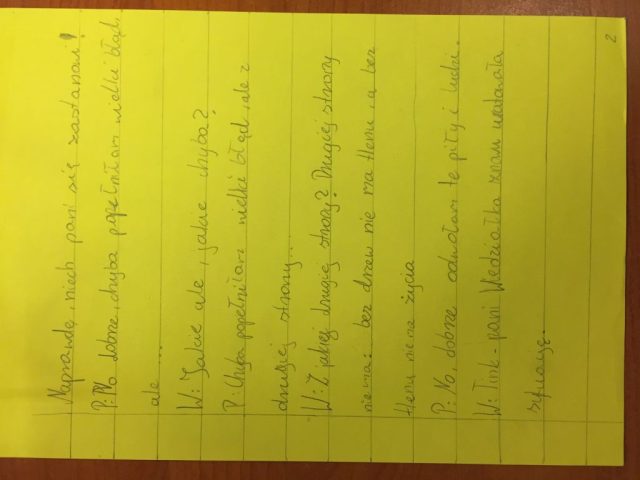 Naprawdę, niech pani się zastanowi!
P: No dobrze, chyba popełniłam wielki błąd,
ale ...
W: Jakie ale, jakie chyba?
P: Chyba popełniłam wielki błąd, ale z
drugiej strony...
W: Z jakiej drugiej strony? Drugiej strony
nie ma: bez drzew nie ma tlenu, a bez
tlenu nie ma życia
P: No, dobrze odwołam te piły i ludzi.
W: Uff - pani Wiedziałka znów uratowała
sytuację.
2